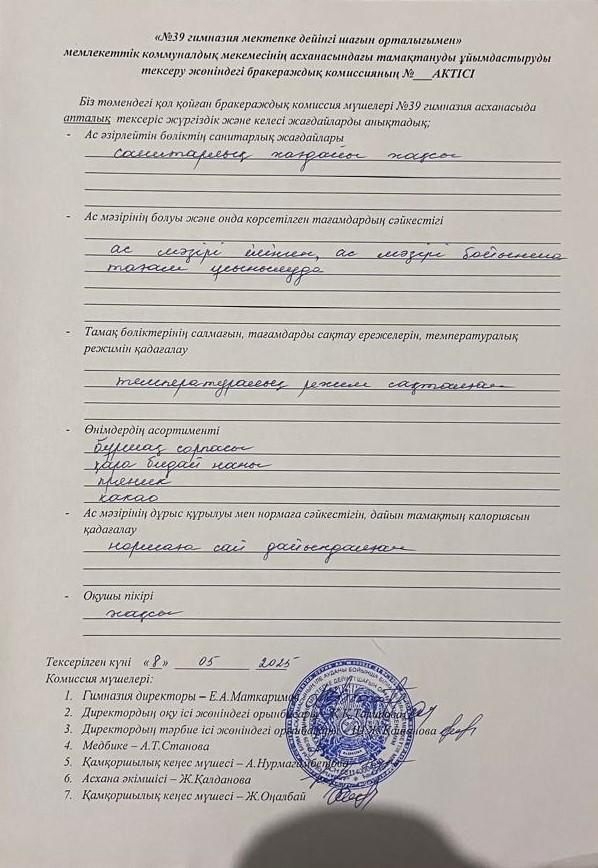 «№39 гимназия мектепке дейінгі шағын орталығымен»
мемлекеттік коммуналдық мекемесінің асханасындағы тамақтануды ұйымдастыруды
тексеру жөніндегі бракераждық комиссияның №___АКТІСІ
Біз төмендегі қол қойған бракераждық комиссия мүшелері №39 гимназия асханасыда
апталық тексеріс жүргіздік және келесі жағдайларды анықтадық;
- Ас әзірлейтін бөліктің санитарлық жағдайлары
санитарлық жағдайы жақсы
- Ас мәзірінің болуы және онда көрсетілген тағамдардың сәйкестігі
ас мәзірі ілінген, ас мәзірі бойынша
тағам ұсынылуда
- Тамақ бөліктерінің салмағын, тағамдарды сақтау ережелерін, температуралық
режимін қадағалау
температуралық режим сақталған
- Өнімдердің асортименті
бұршақ сорпасы
қара бидай наны
пряник
какао
- Ас мәзірінің дұрыс құрылуы мен нормаға сәйкестігін, дайын тамақтың калориясын
қадағалау
нормаға сай дайындалған
- Оқушы пікірі
жақсы
Тексерілген күні «8» 05 2025
Комиссия мүшелері:
1. Гимназия директоры – Е.А.Маткаримов
2. Директордың оқу ісі жөніндегі орынбасары
3. Директордың тәрбие ісі жөніндегі
4. Медбике – А.Т.Станова
5. Қамқоршылық кеңес мүшесі – А.Нурмагамбетова
6. Асхана әкімшісі – Ж.Қалданова
7. Қамқоршылық кеңес мүшесі – Ж.Оңалбай